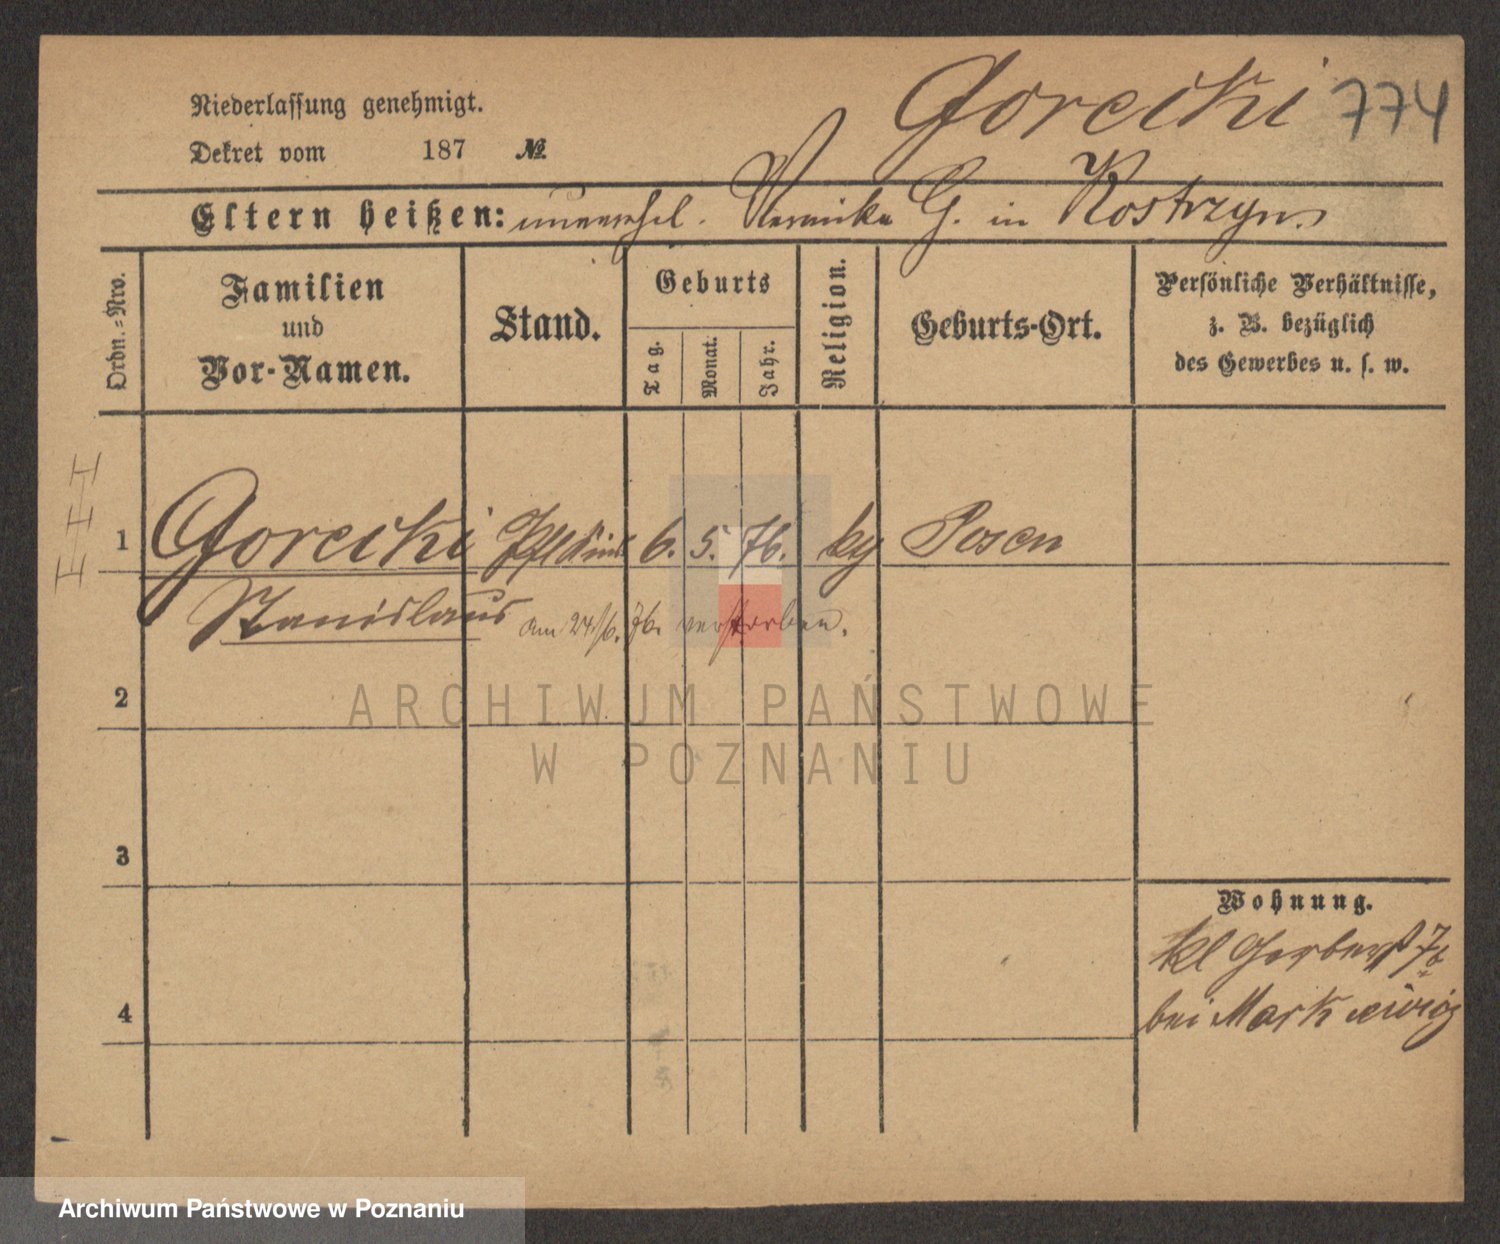 Gorecki 774
Niederlassung genehmigt.
Dekret vom 187 №
Eltern heißen: unverehel. Veronika G. in Kostrzyn.
Ordn.-Nro.
Familien
und
Vor-Namen.
Stand.
Geburts
Tag.
Monat.
Jahr.
Religion.
Geburts-Ort.
Persönliche Verhältnisse,
z. B. bezüglich
des Gewerbes u. s. w.
1 Gorecki Pfl Kind 6. 5. 76. Posen
Stanislaus am 24/6. 76. verstorben.
2
ARCHIWUM PAŃSTWOWE
W POZNANIU
3
Wohnung.
kl Gerberst 7b
4 bei Markiewicz
Archiwum Państwowe w Poznaniu